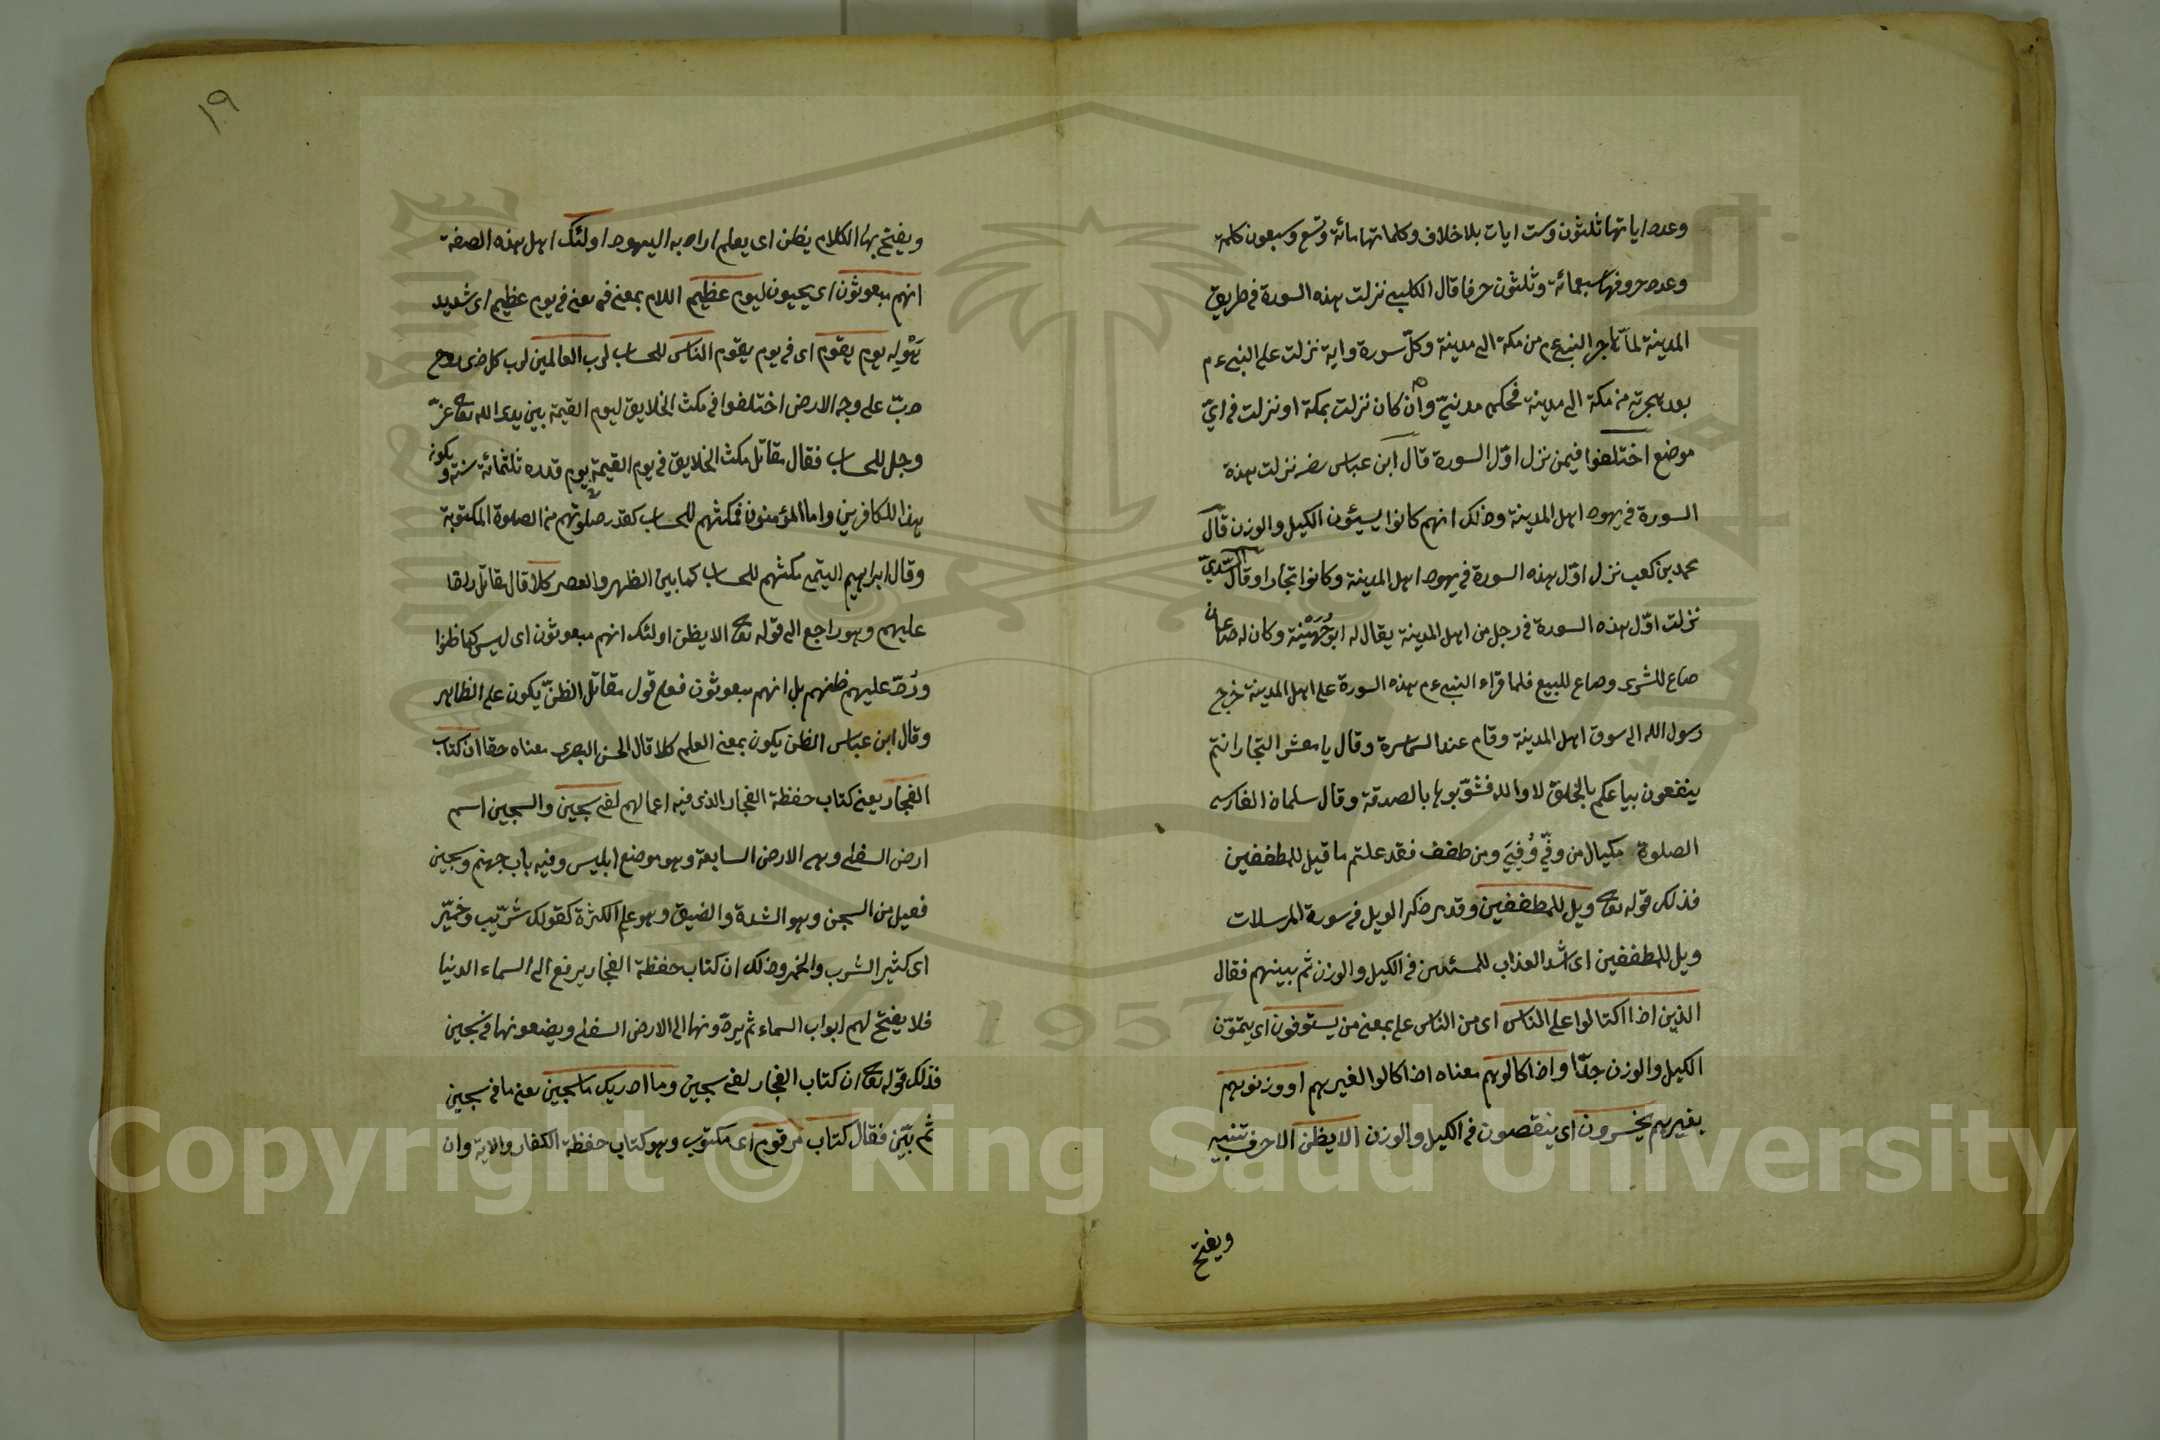 وعدد اياتها ثلثون وست ايات بلا خلاف وكلماتها مائة وتسع وسبعون كلمة
وعدد حروفها سبعمائة وثلثون حرفا قال الكلبي نزلت هذه السورة في طريق
المدينة لما هاجر النبي عم من مكة الى مدينة وكلّ سورة واية نزلت على النبي عم
بعد هجرته من مكة الى مدينة فحكمه مدنيّ وان كان نزلت بمكة او نزلت في ايّ
موضع اختلفوا فيمن نزل اوّل السورة قال ابن عباس رضه نزلت هذه
السورة في يهود اهل المدينة وذلك انهم كانوا يسيئون الكيل والوزن قال
محمد بن كعب نزل اوّل هذه السورة في يهود اهل المدينة وكانوا تجارا وقال السّديّ
نزلت اوّل هذه السورة في رجل من اهل المدينة يقال له ابو جُهَيْنة وكان له صاعان
صاع للشرى وصاع للبيع فلما قراء النبي عم هذه السورة على اهل المدينة خرج
رسول الله الى سوق اهل المدينة وقام عند السماسرة وقال يا معشر التجار انتم
ينفعون بياعكم بالحلف لا والله فشوّبوها بالصدقة وقال سلمان الفارسي
الصلوة مكيال من وفّي وُفِيَ ومن طفف فقد علمتم ما قيل للمطففين
فذلك قوله تعا ويل للمطففين وقد مر ذكر الويل في سورة المرسلات
ويل للمطففين اى اشد العذاب للمسيئين في الكيل والوزن ثم بينهم فقال
الذين اذا اكتالوا على الناس اى من الناس على بمعنى من يستوفون اى يتمّون
الكيل والوزن جدّا واذا كالوهم معناه اذا كالوا لغيرهم او وزنوهم
بغيرهم يخسرون اى ينقصون في الكيل والوزن الا يظن الا حرف تنبيه
ويفتح
١٩
ويفتح بها الكلام يظن اى يعلم اراد به اليهود اولئك اهل هذه الصفة
انهم مبعوثون اى يحيون ليوم عظيم اللام بمعنى في يعني في يوم عظيم اى شديد
هَوْلِه يوم يقوم اى في يوم يقوم الناس للحساب لرب العالمين لرب كل ذى روح
دبّ على وجه الارض اختلفوا في مكث الخلايق ليوم القيمة بين يدى الله تعا عزّ
وجل للحساب فقال مقاتل مكث الخلايق في يوم القيمة يوم قدره ثلثمائة سنة ويكون
هذا للكافرين واما المؤمنون فمكثهم للحساب كقدر صلوتهم من الصلوة المكتوبة
وقال ابراهيم التيمى مكثهم للحساب كما بين الظهر والعصر كلا قال مقاتل ردّا
عليهم وهو راجع الى قوله تعا الا يظن اولئك انهم مبعوثون اى ليس كما ظنوا
ورُدّ عليهم ظنهم بل انهم مبعوثون فعلى قول مقاتل الظنّ يكون على الظاهر
وقال ابن عباس الظن يكون بمعنى العلم كلا قال الحسن البصرى معناه حقا ان كتاب
الفجار يعنى كتاب حفظة الفجار الذى فيه اعمالهم لفى سجين والسجين اسم
ارض السفلى وهى الارض السابعة وهو موضع ابليس وفيه باب جهنم وسجين
فعيل من السجن وهو الشدة والضيق وهو على الكثرة كقولك شرّيب وخمّير
اى كثير الشرب والخمر وذلك ان كتاب حفظة الفجار يرفع الى السماء الدنيا
فلا يفتح لهم ابواب السماء ثم يردّونها الى الارض السفلى ويضعونها في سجين
فذلك قوله تعا ان كتاب الفجار لفى سجين وما ادريك ما سجين يعنى ما في سجين
ثم بيّن فقال كتاب مرقوم اى مكتوب وهو كتاب حفظة الكفار والاية وان
Copyright © King Saud University
1957